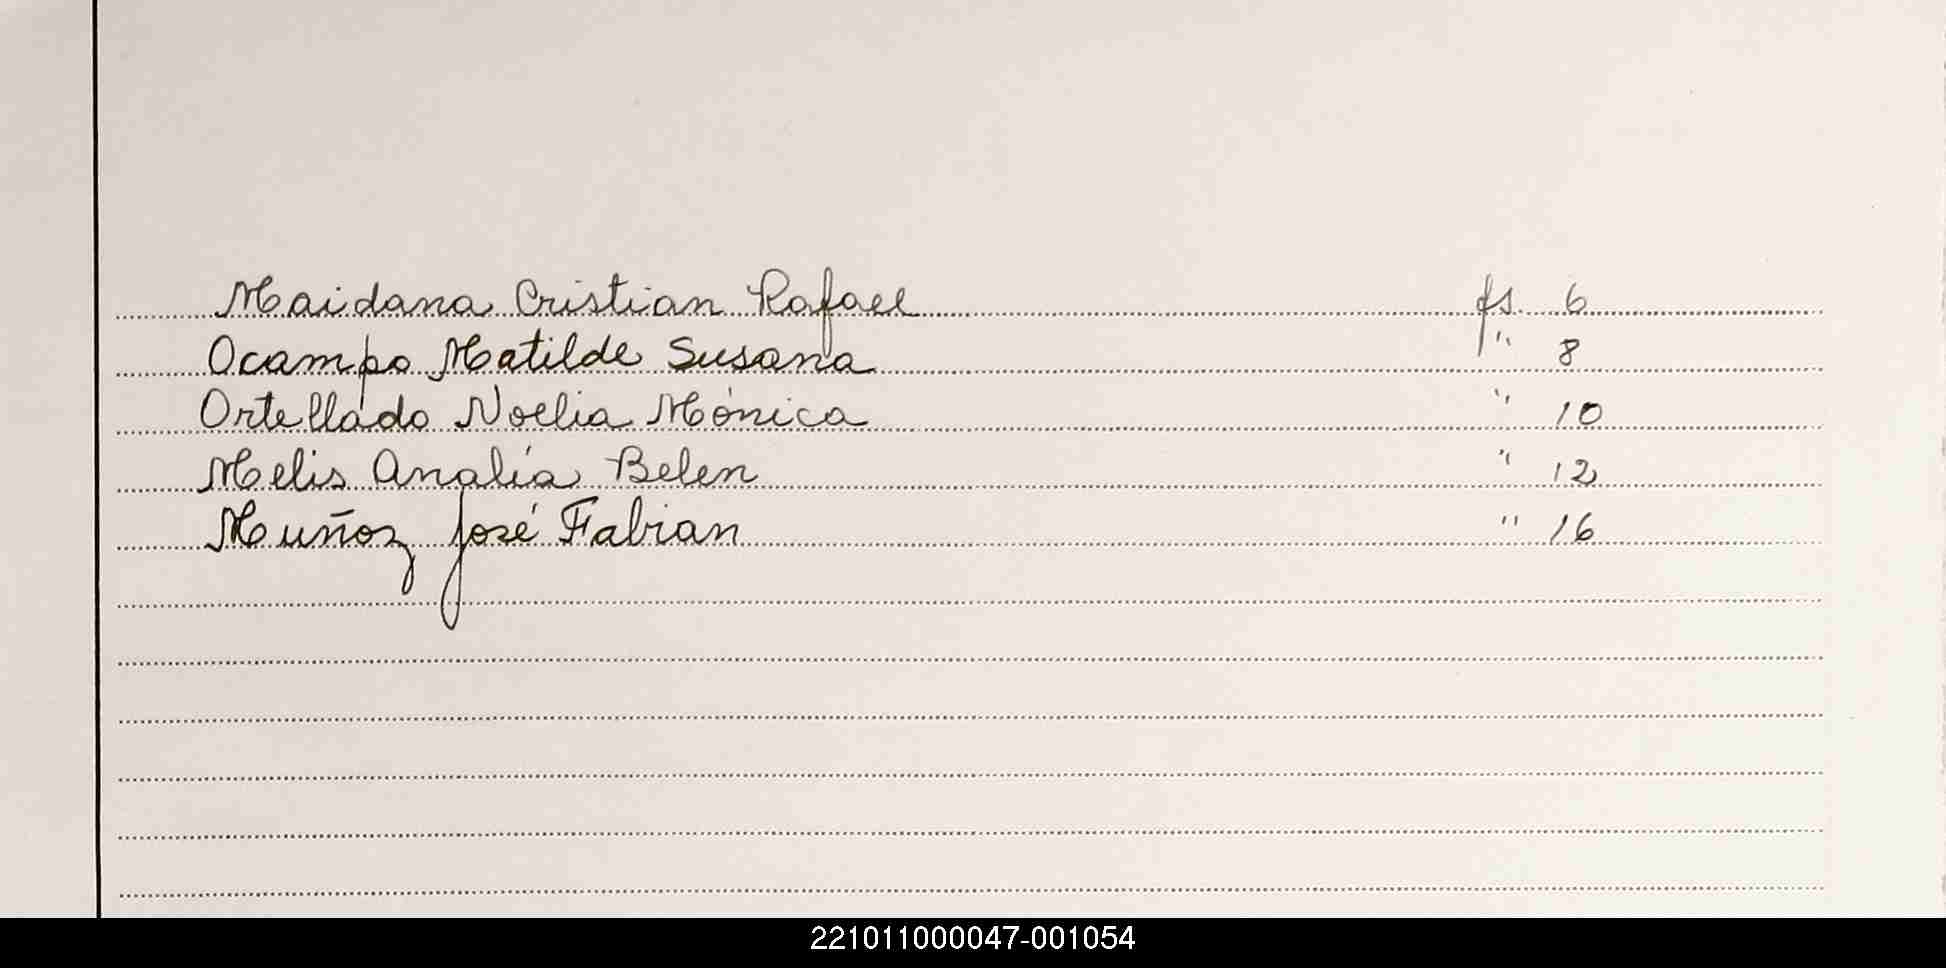 Maidana Cristian Rafael fs. 6
Ocampo Matilde Susana " 8
Ortellado Noelia Mónica " 10
Melis Analía Belen " 12
Muñoz José Fabian " 16
221011000047-001054